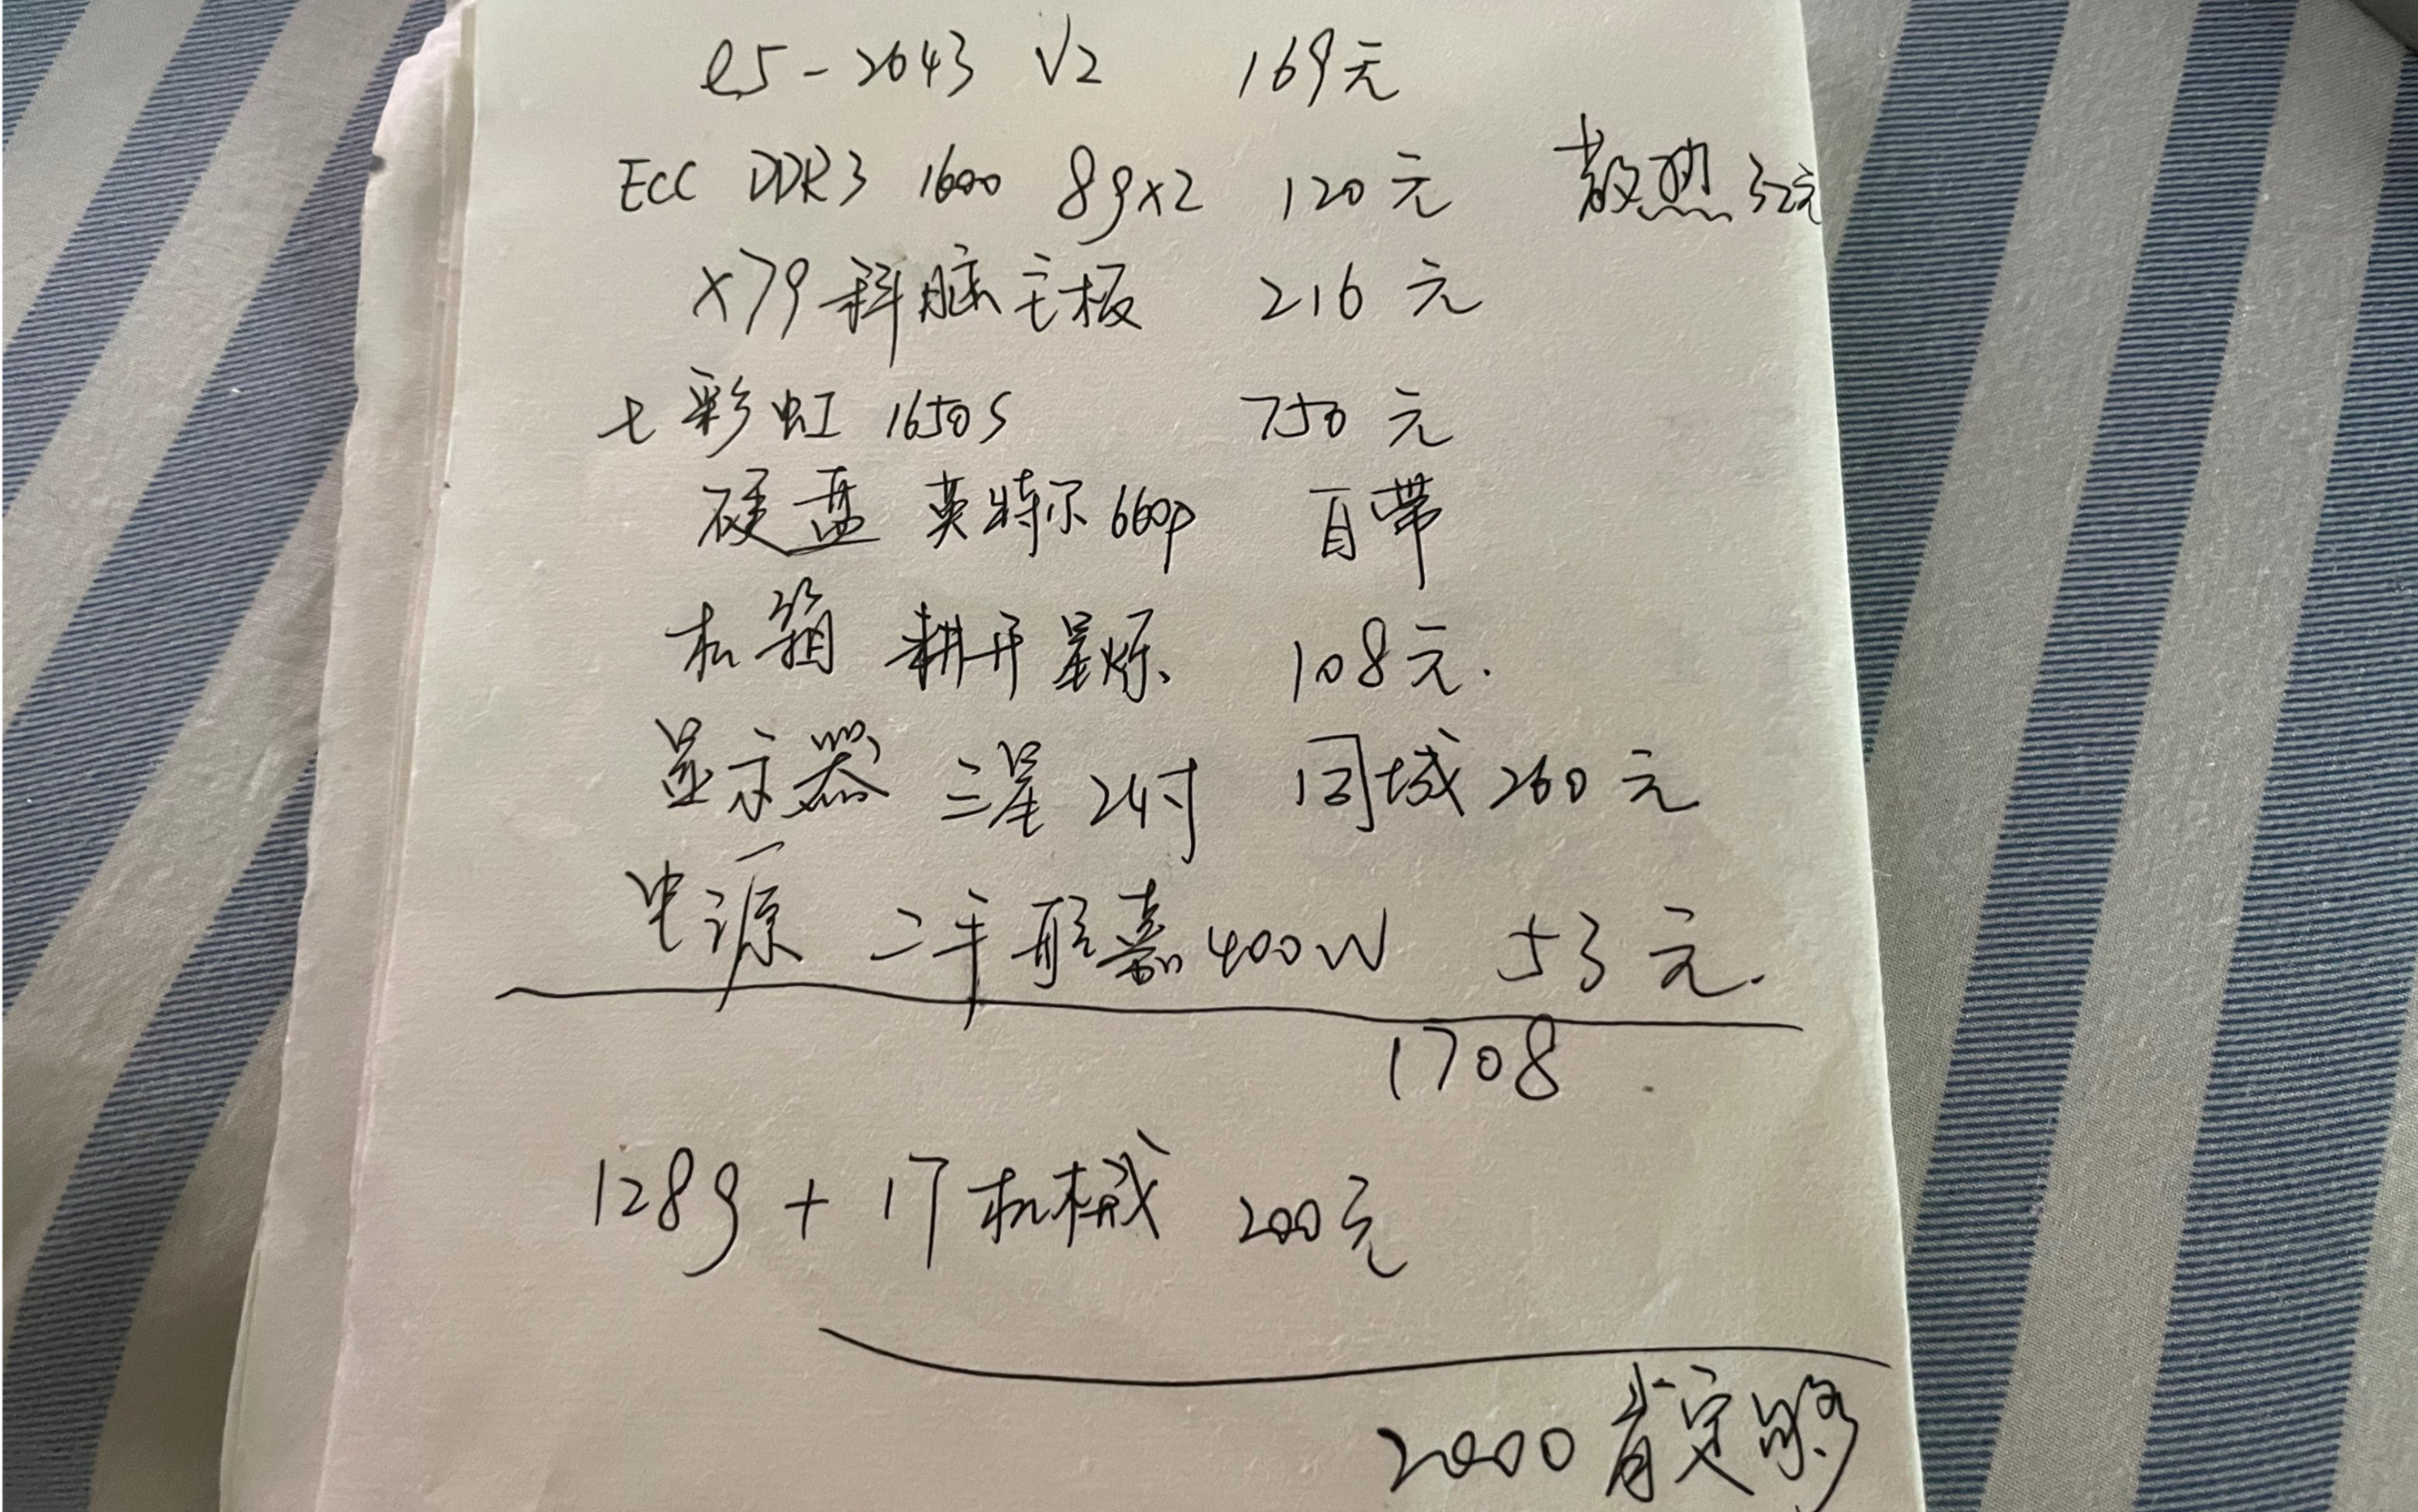 e5-2643 V2 169元
ECC DDR3 1600 8g×2 120元 散热 32元
x79 科脑主板 216元
七彩虹 1650s 750元
硬盘 英特尔 660p 自带
机箱 耕升星烁 108元.
显示器 三星 24寸 同城 260元
电源 二手航嘉 400W 53元.
1708
128g + 1T 机械 200元
2000 肯定够